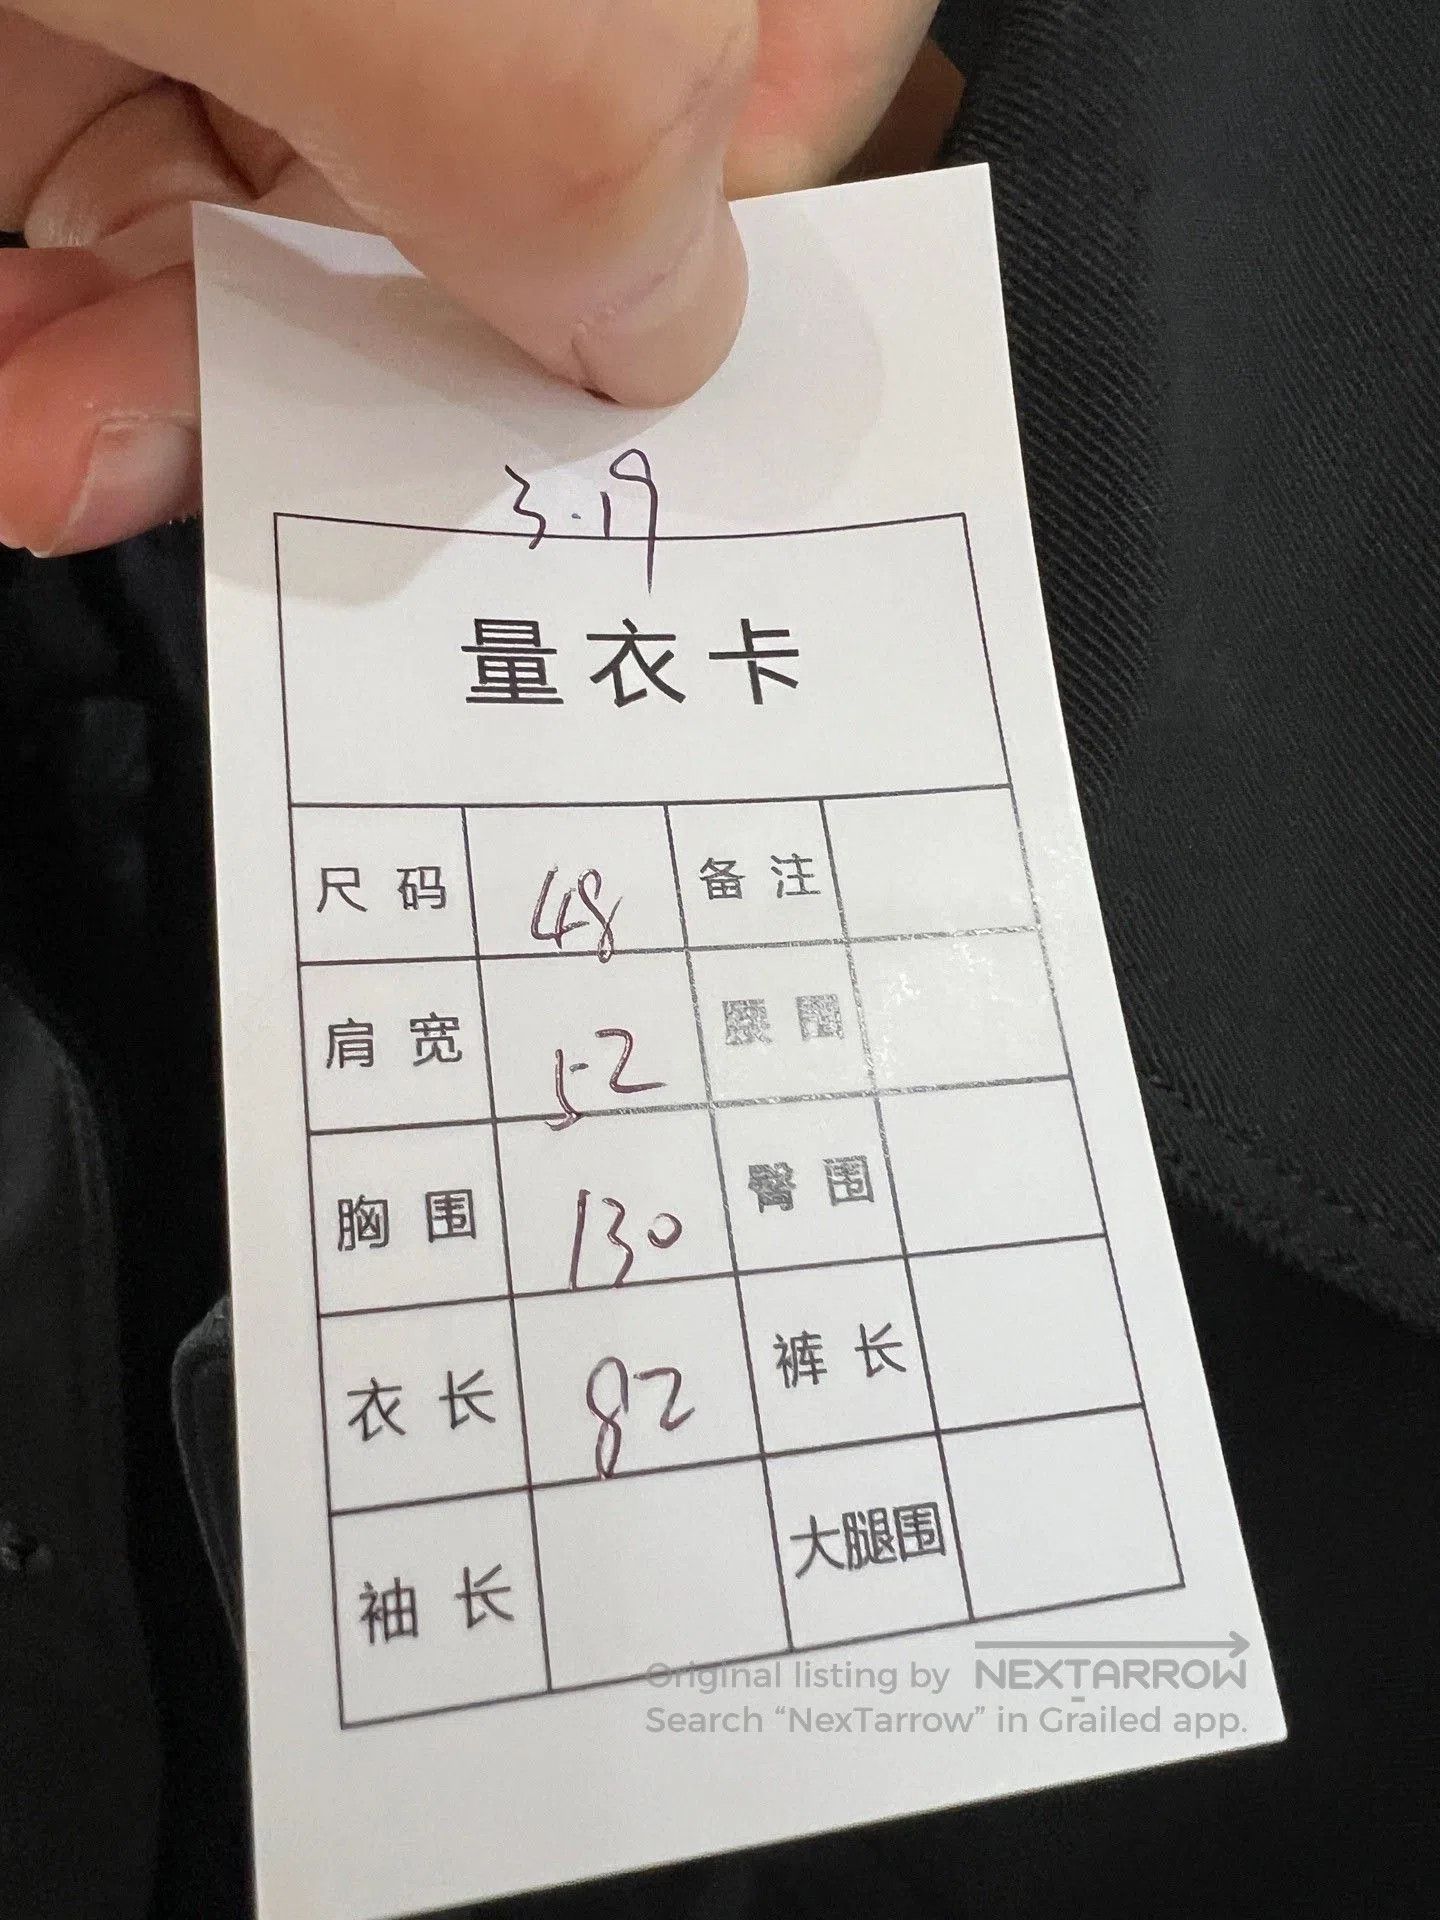 3.19
量衣卡
尺码 48 备注
肩宽 52 腰围
胸围 130 臀围
衣长 82 裤长
袖长 大腿围
Original listing by NEXTARROW
Search “NexTarrow” in Grailed app.